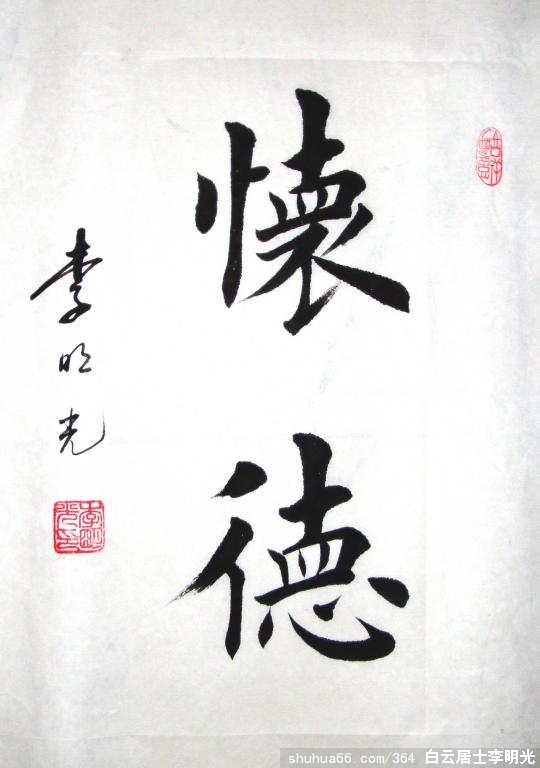 懷德
李明光
shuhua66.com/364 白云居士李明光